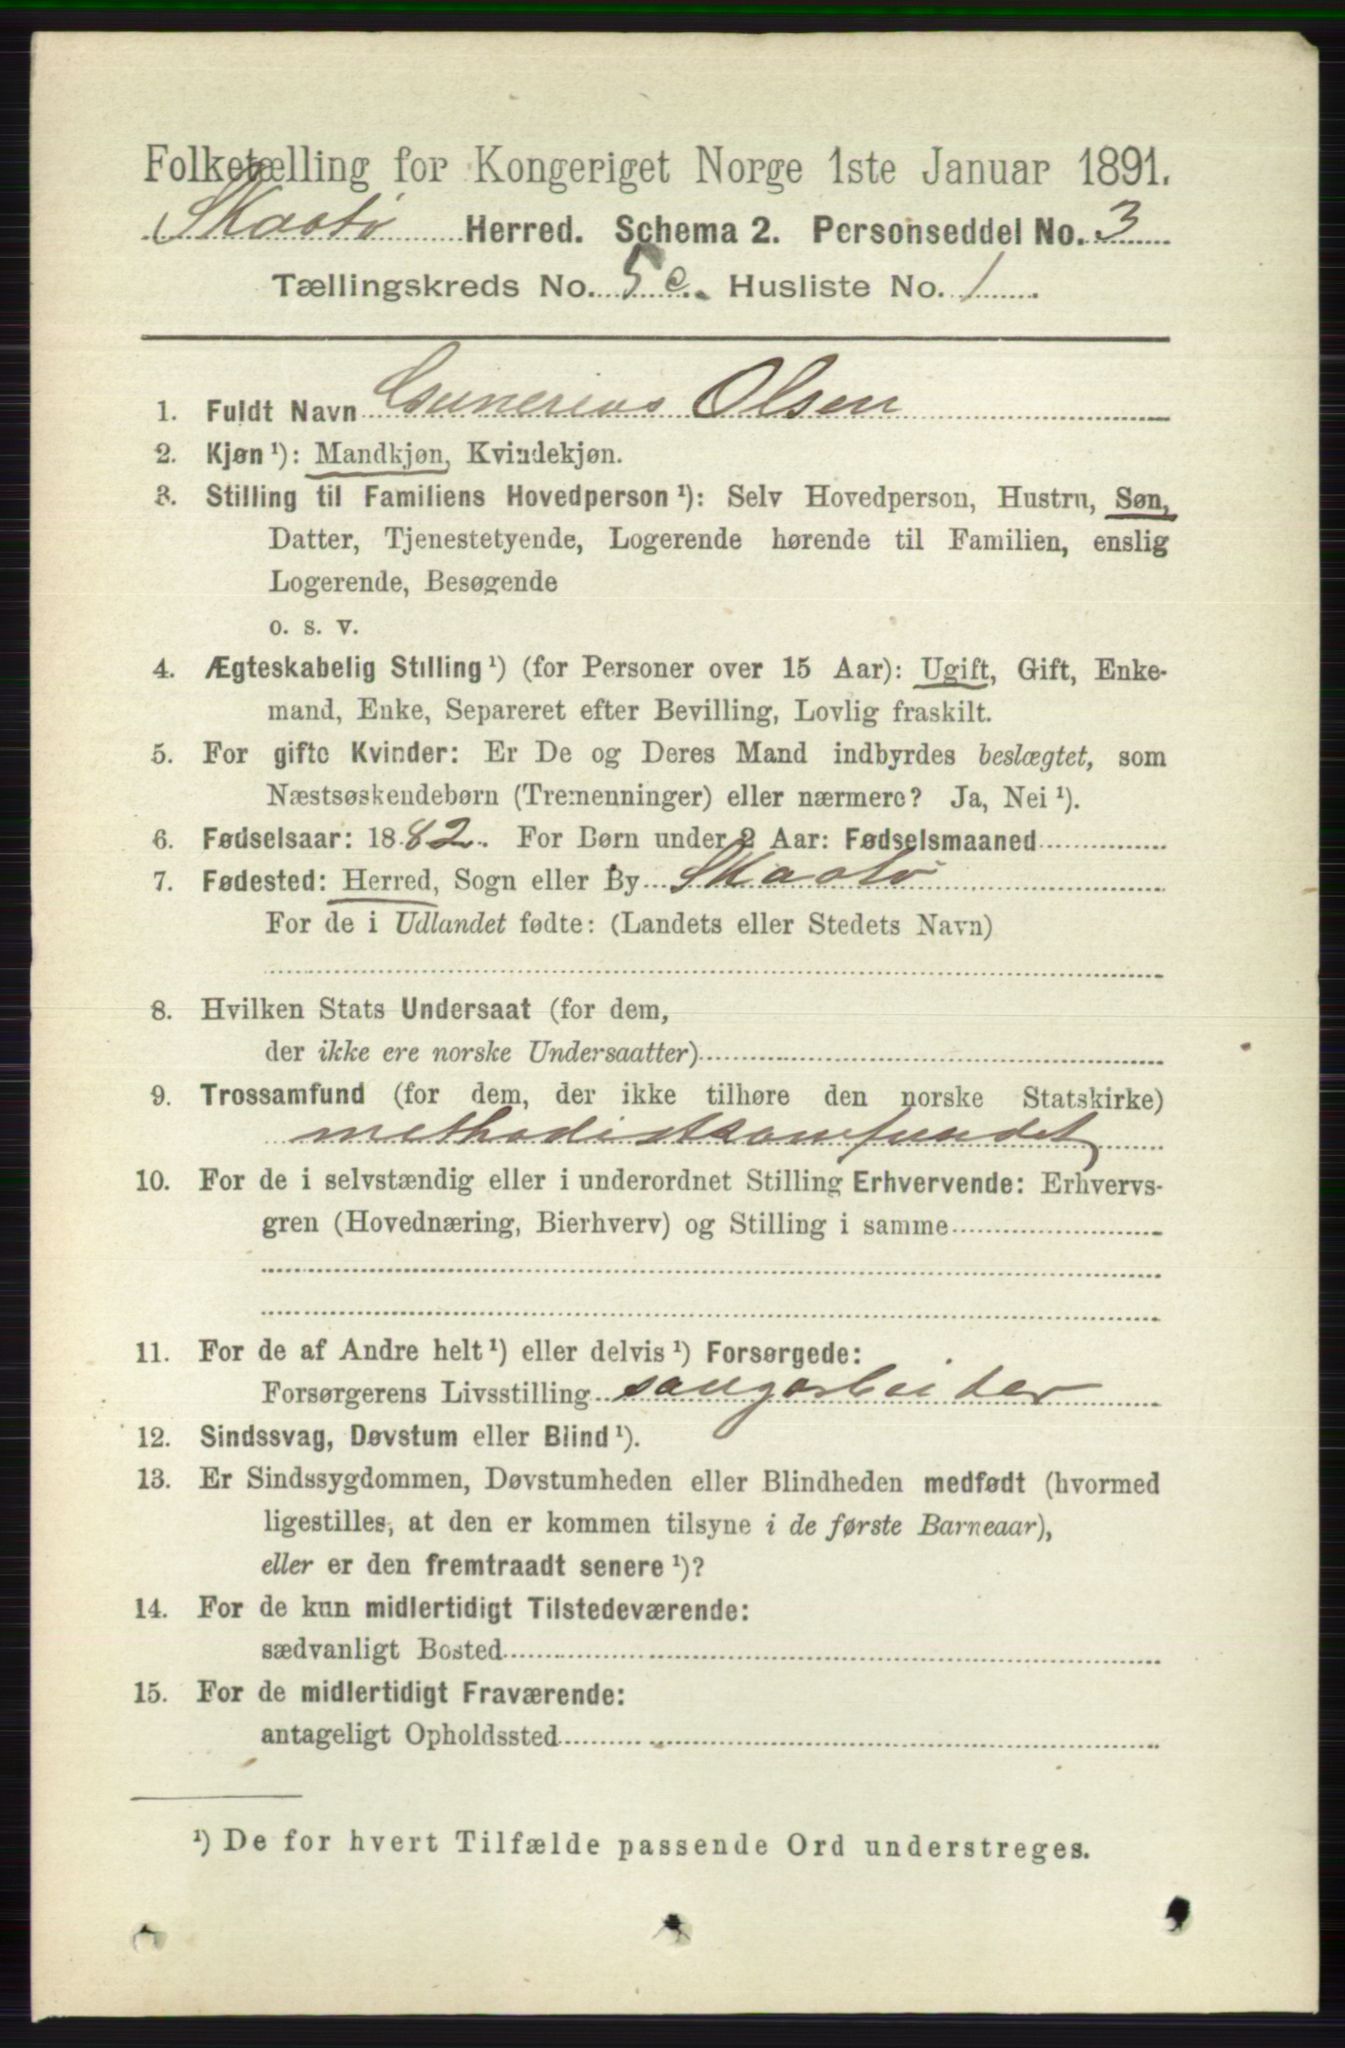 Folketælling for Kongeriget Norge 1ste Januar 1891.
Skaatø Herred. Schema 2. Personseddel No. 3
Tællingskreds No. 5 c. Husliste No. 1
1. Fuldt Navn Gunerius Olsen
2. Kjøn ¹): Mandkjøn, Kvindekjøn.
3. Stilling til Familiens Hovedperson ¹): Selv Hovedperson, Hustru, Søn,
Datter, Tjenestetyende, Logerende hørende til Familien, enslig
Logerende, Besøgende
o. s. v.
4. Ægteskabelig Stilling ¹) (for Personer over 15 Aar): Ugift, Gift, Enke-
mand, Enke, Separeret efter Bevilling, Lovlig fraskilt.
5. For gifte Kvinder: Er De og Deres Mand indbyrdes beslægtet, som
Næstsøskendebørn (Tremenninger) eller nærmere? Ja, Nei ¹).
6. Fødselsaar: 1882. For Børn under 2 Aar: Fødselsmaaned
7. Fødested: Herred, Sogn eller By Skaatø
For de i Udlandet fødte: (Landets eller Stedets Navn)
8. Hvilken Stats Undersaat (for dem,
der ikke ere norske Undersaatter)
9. Trossamfund (for dem, der ikke tilhøre den norske Statskirke)
methodistsamfundet
10. For de i selvstændig eller i underordnet Stilling Erhvervende: Erhvervs-
gren (Hovednæring, Bierhverv) og Stilling i samme
11. For de af Andre helt ¹) eller delvis ¹) Forsørgede:
Forsørgerens Livsstilling saugarbeider
12. Sindssvag, Døvstum eller Blind ¹).
13. Er Sindssygdommen, Døvstumheden eller Blindheden medfødt (hvormed
ligestilles, at den er kommen tilsyne i de første Barneaar),
eller er den fremtraadt senere ¹)?
14. For de kun midlertidigt Tilstedeværende:
sædvanligt Bosted
15. For de midlertidigt Fraværende:
antageligt Opholdssted
¹) De for hvert Tilfælde passende Ord understreges.